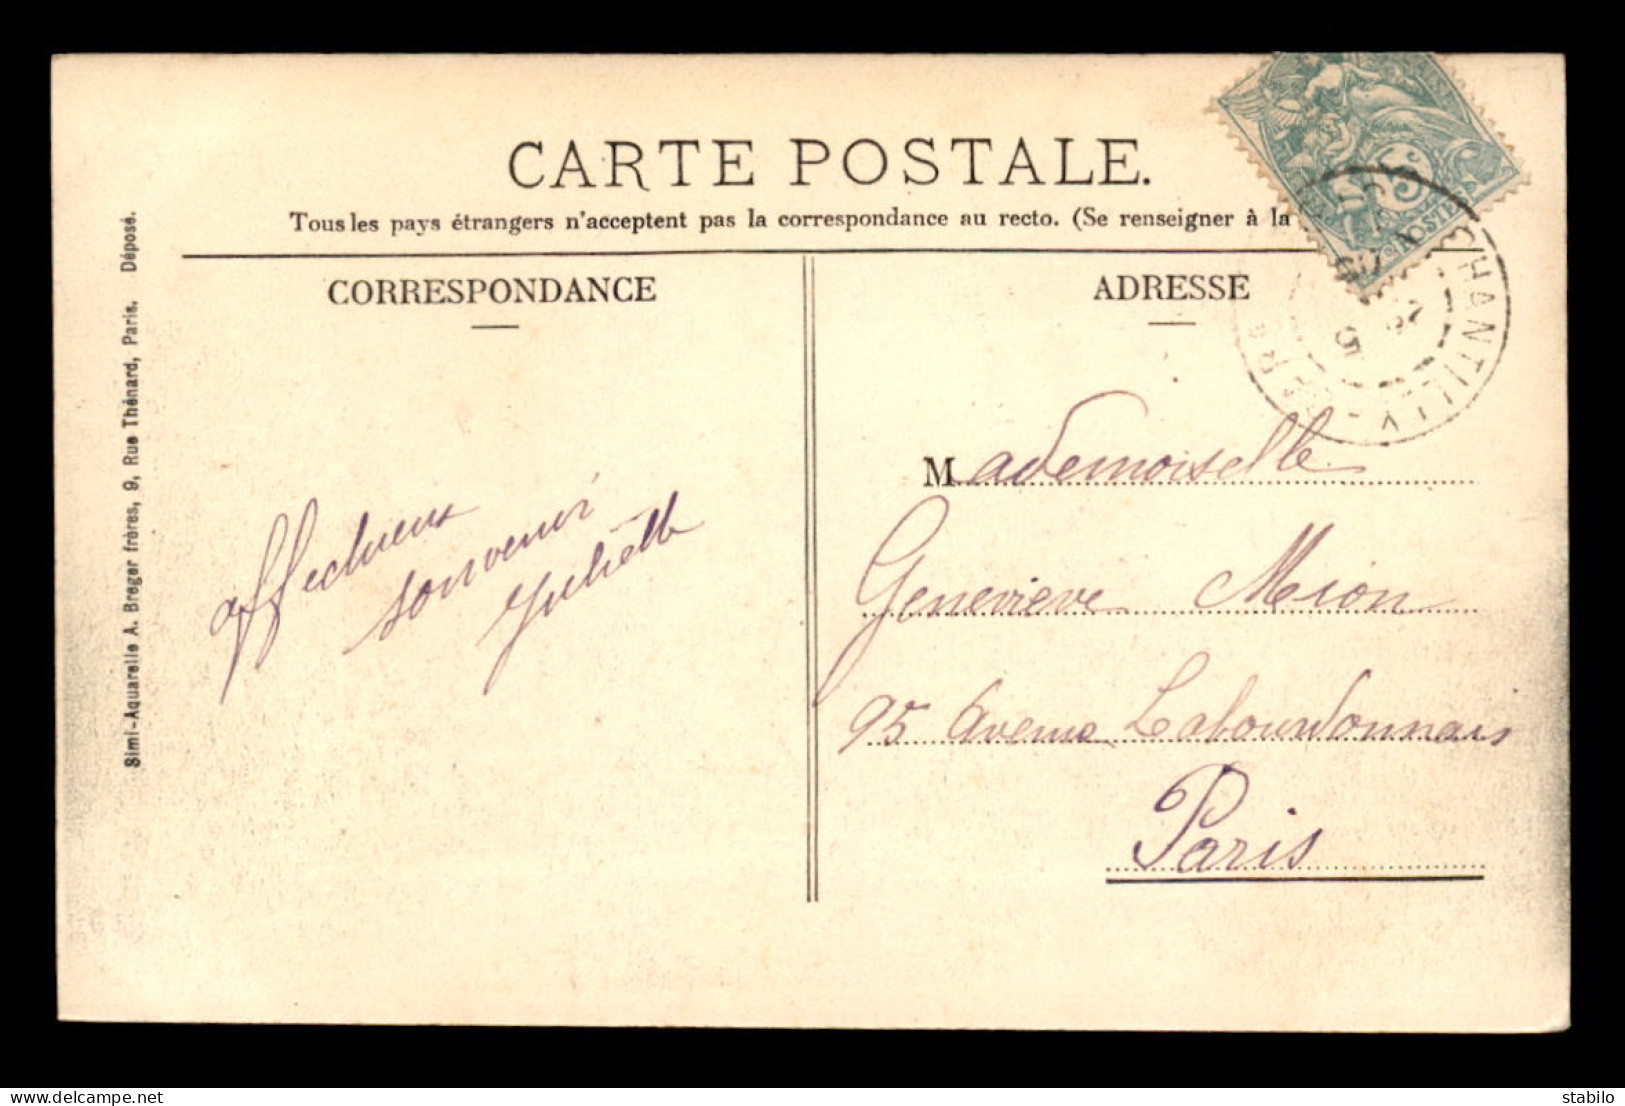 CARTE POSTALE.
Tous les pays étrangers n'acceptent pas la correspondance au recto. (Se renseigner à la
CORRESPONDANCE
ADRESSE
Simi-Aquarelle A. Breger frères, 9, Rue Thénard, Paris. Déposé.
CHANTILLY
5c
POSTES
affectueux
souvenir
Juliette
Mademoiselle
Geneviève Mion
95 Avenue Labourdonnais
Paris
delcampe.net
stabilo